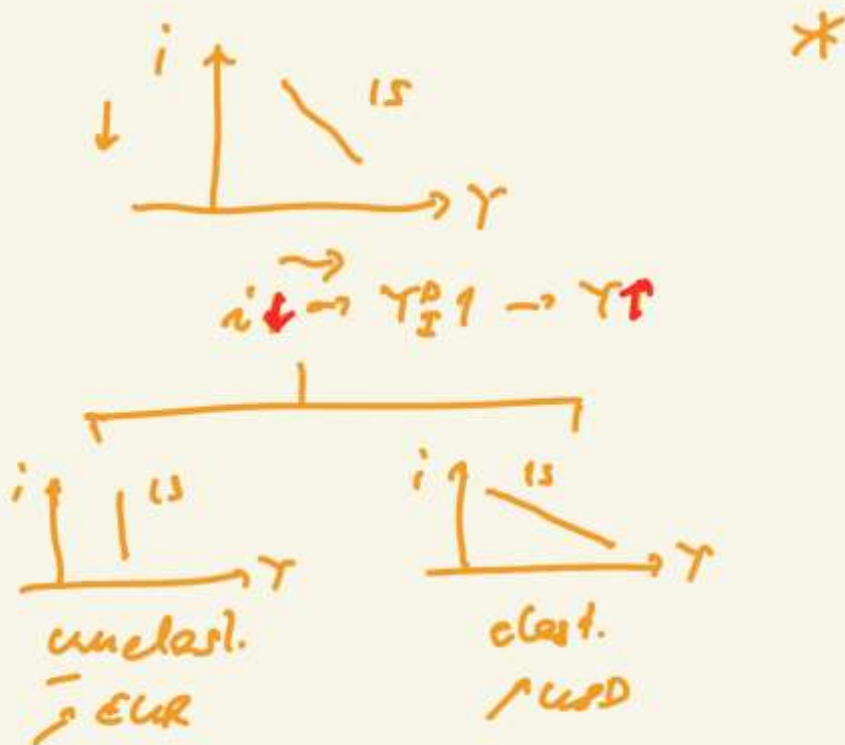 *
i
↓
IS
Y
i ↓ → Y I ↑ → Y ↑
i IS
Y
unelast.
↗ EUR
i IS
Y
elast.
↗ USD